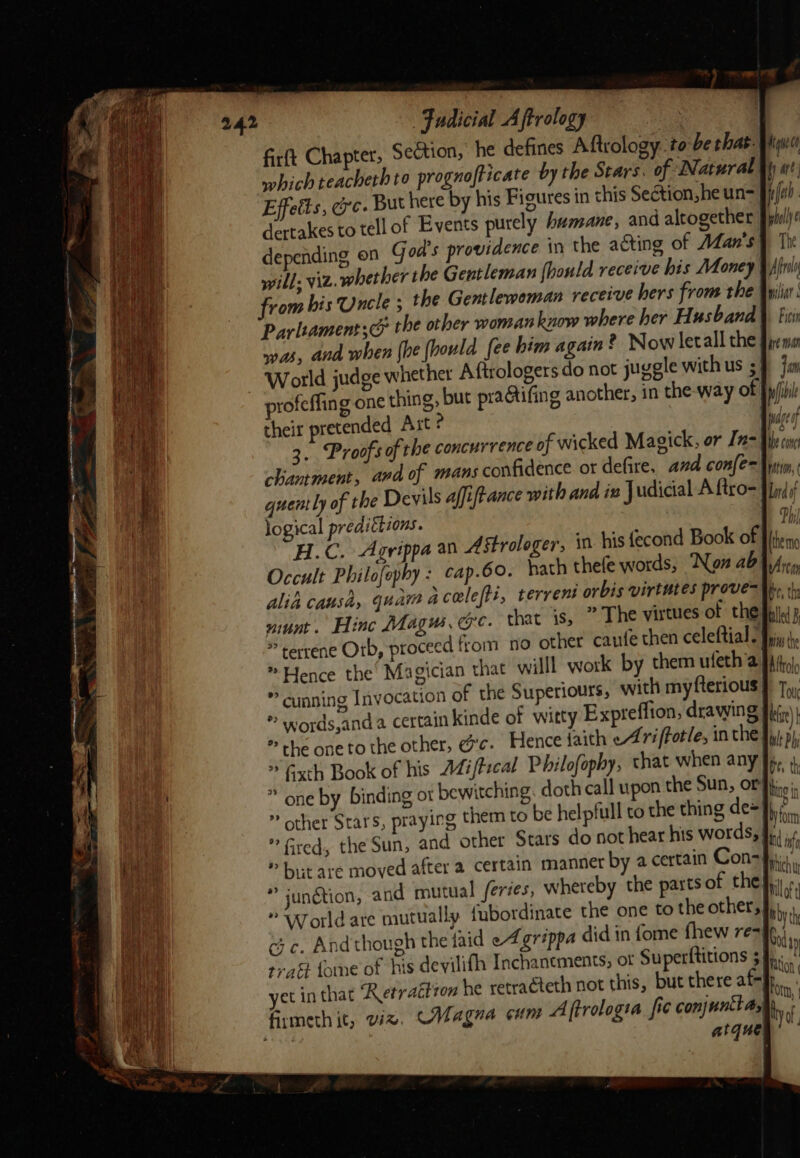 242 Judicial Aſtrology
firſt Chapter, Section, he defines Aſtrology to be that
which teacheth to prognoſticate by the Stars of Natural
Effects, &c. But here by his Figures in this Section, he un-
dertakes to tell of Events purely humane, and altogether
depending on God's providence in the acting of Man's
will; viz. whether the Gentleman ſhould receive his Money
from his Uncle ; the Gentlewoman receive hers from the
Parliament; & the other woman know where her Husband
was, and when ſhe ſhould ſee him again? Now let all the
World judge whether Aſtrologers do not juggle with us ;
profeſſing one thing, but practiſing another, in the way of
their pretended Art ?
3. Proofs of the concurrence of wicked Magick, or In-
chantment, and of mans confidence or deſire, and conſe-
quently of the Devils aſſiſtance with and in Judicial Aſtro-
logical predictions.
H.C. Agrippa an Aſtrologer, in his ſecond Book of
Occult Philoſophy : cap.60. hath theſe words, Non ab
aliâ causâ, quàm à cœleſti, terreni orbis virtutes prove-
niunt. Hinc Magus, &c. that is, ” The virtues of the
” terrene Orb, proceed from no other cauſe then celeſtial.
” Hence the Magician that willl work by them uſeth a
” cunning Invocation of the Superiours, with myſterious
” words, and a certain kinde of witty Expreſſion, drawing
” the one to the other, &c. Hence ſaith Ariſtotle, in the
” ſixth Book of his Miſtical Philoſophy, that when any
” one by binding or bewitching, doth call upon the Sun, or
” other Stars, praying them to be helpfull to the thing de-
” ſired, the Sun, and other Stars do not hear his words,
” but are moved after a certain manner by a certain Con-
” junction, and mutual ſeries, whereby the parts of the
” World are mutually ſubordinate the one to the other,
&c. And though the ſaid Agrippa did in ſome ſhew re-
tract ſome of his deviliſh Inchantments, or Superſtitions ;
yet in that Retraction he retracteth not this, but there af-
firmeth it, viz. Magna cum Aſtrologia ſic conjuncta,
atque